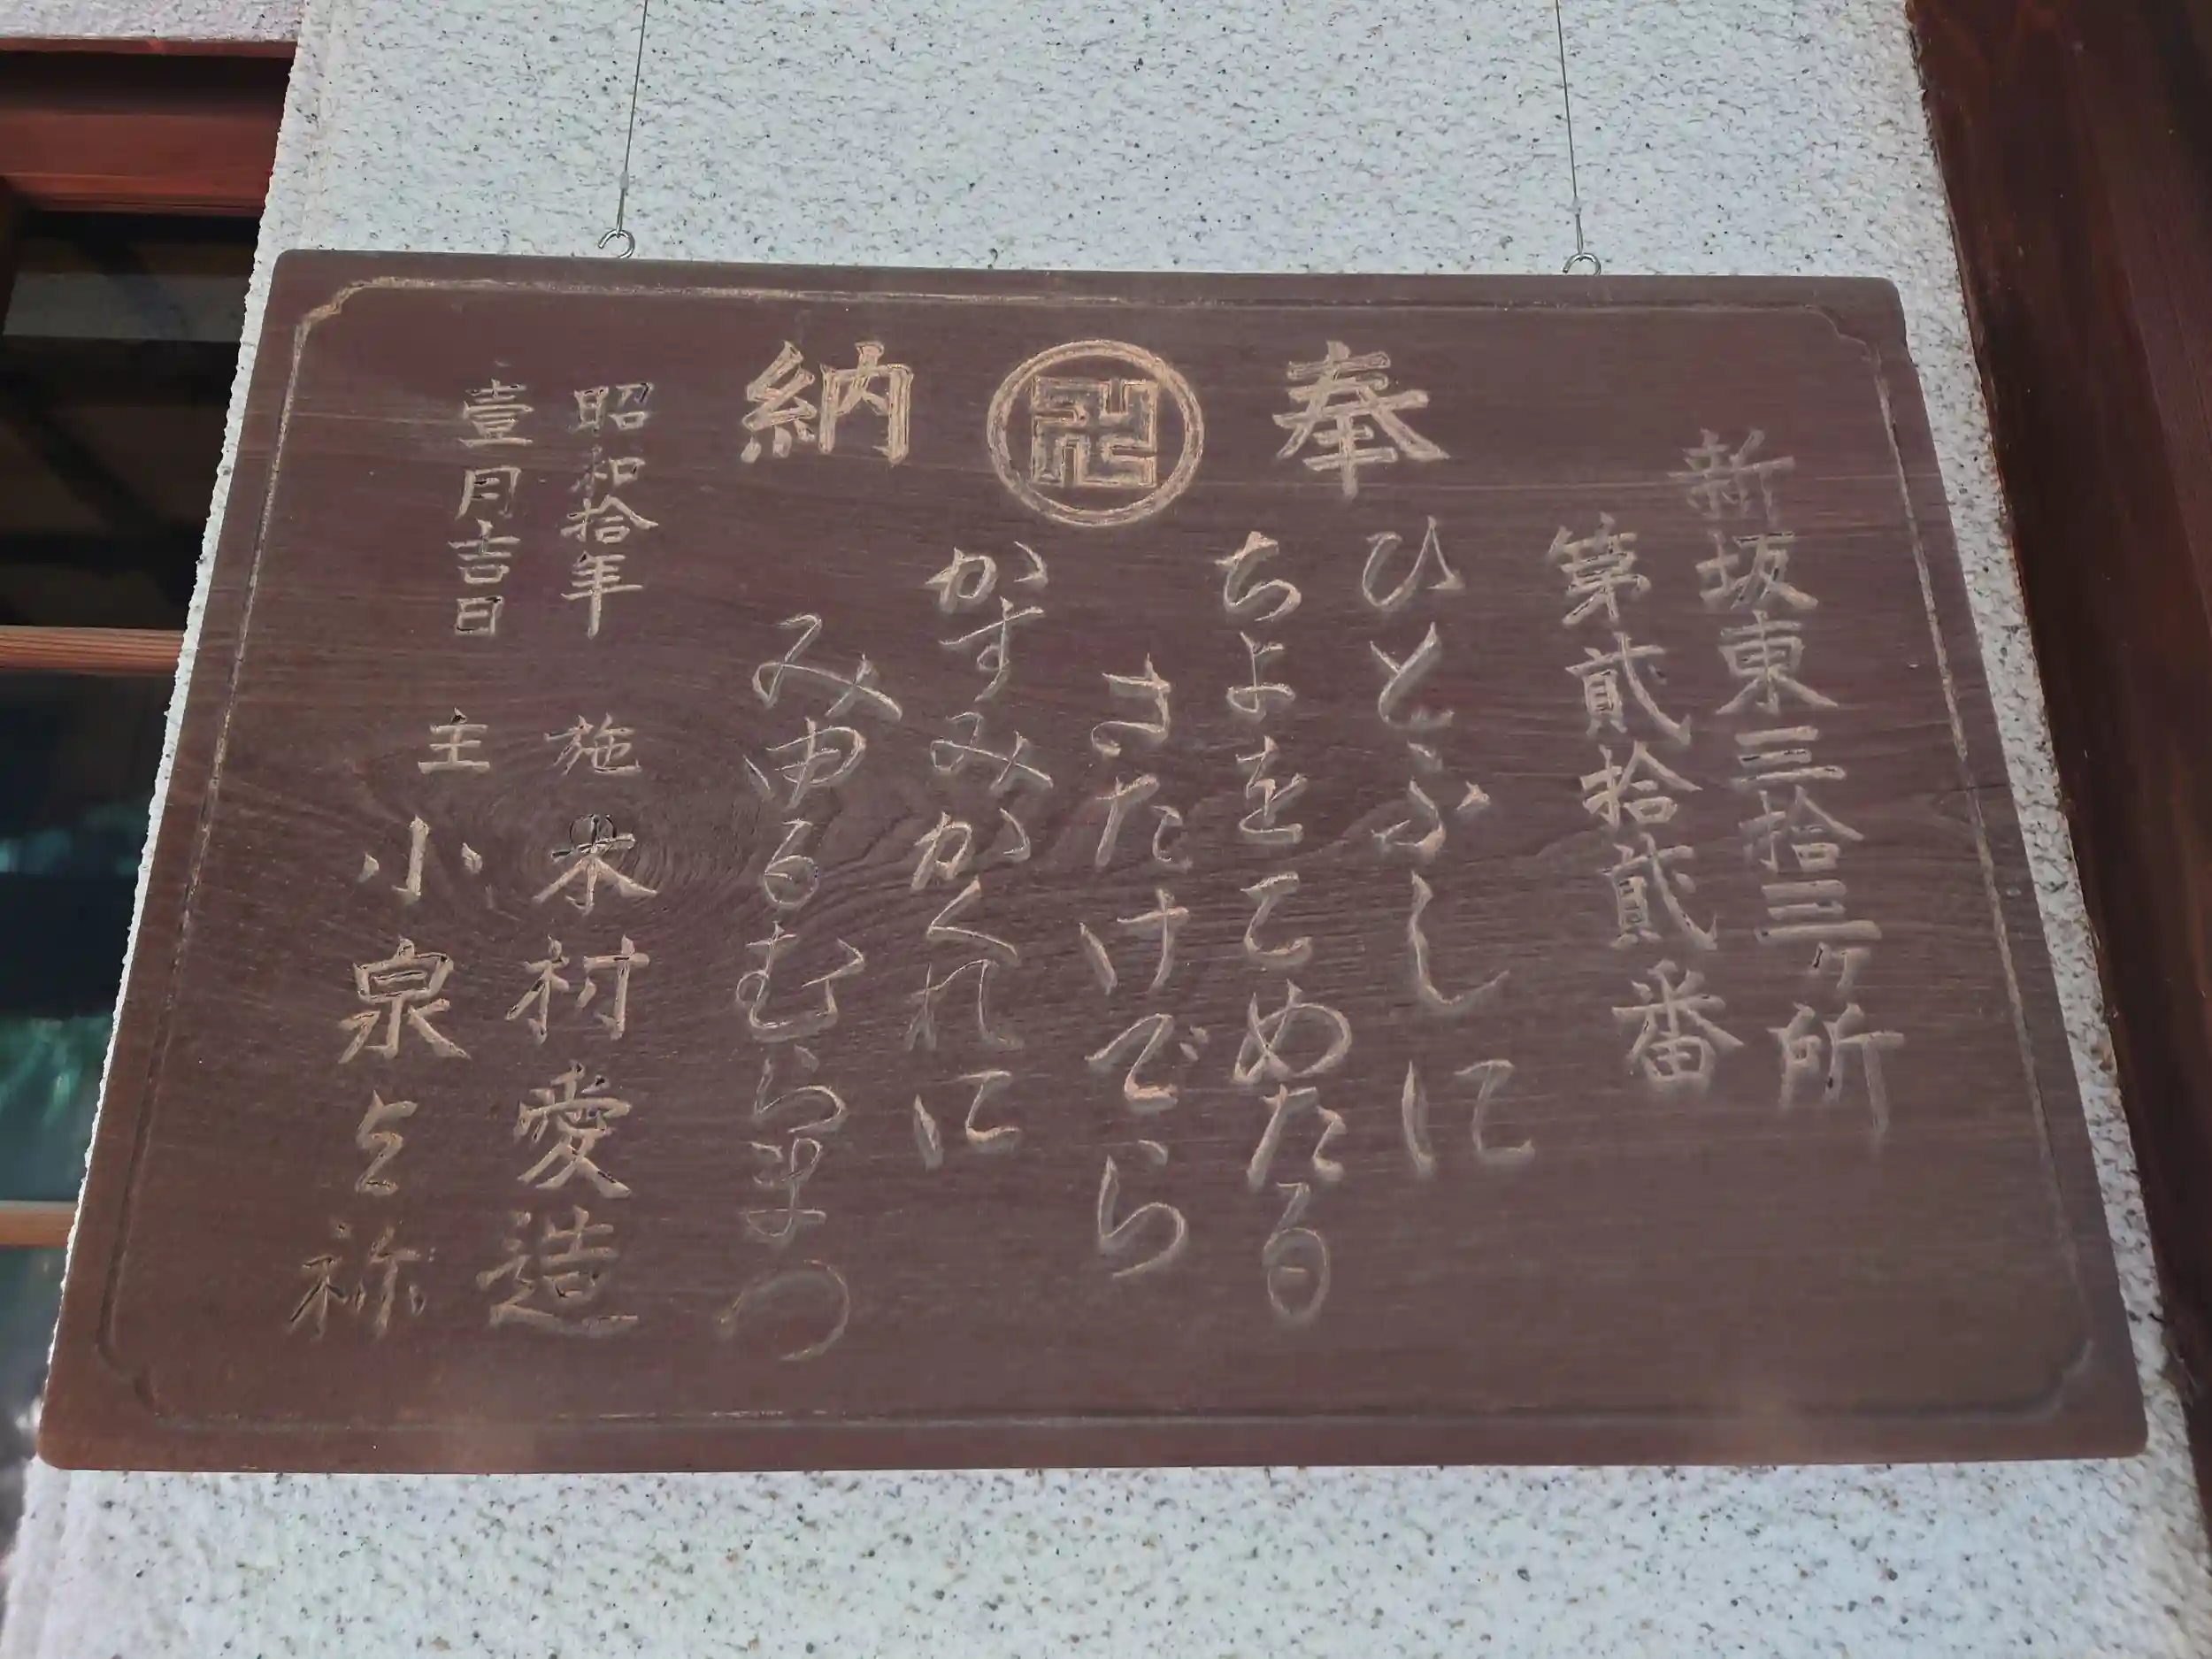 奉納
新坂東三拾三ヶ所
第貳拾貳番
ひとふしに
ちよをこめたる
さたけでら
かすみかくれに
みゆるむらまつ
昭和拾年
壹月吉日
施主
木村愛造
小泉と祢